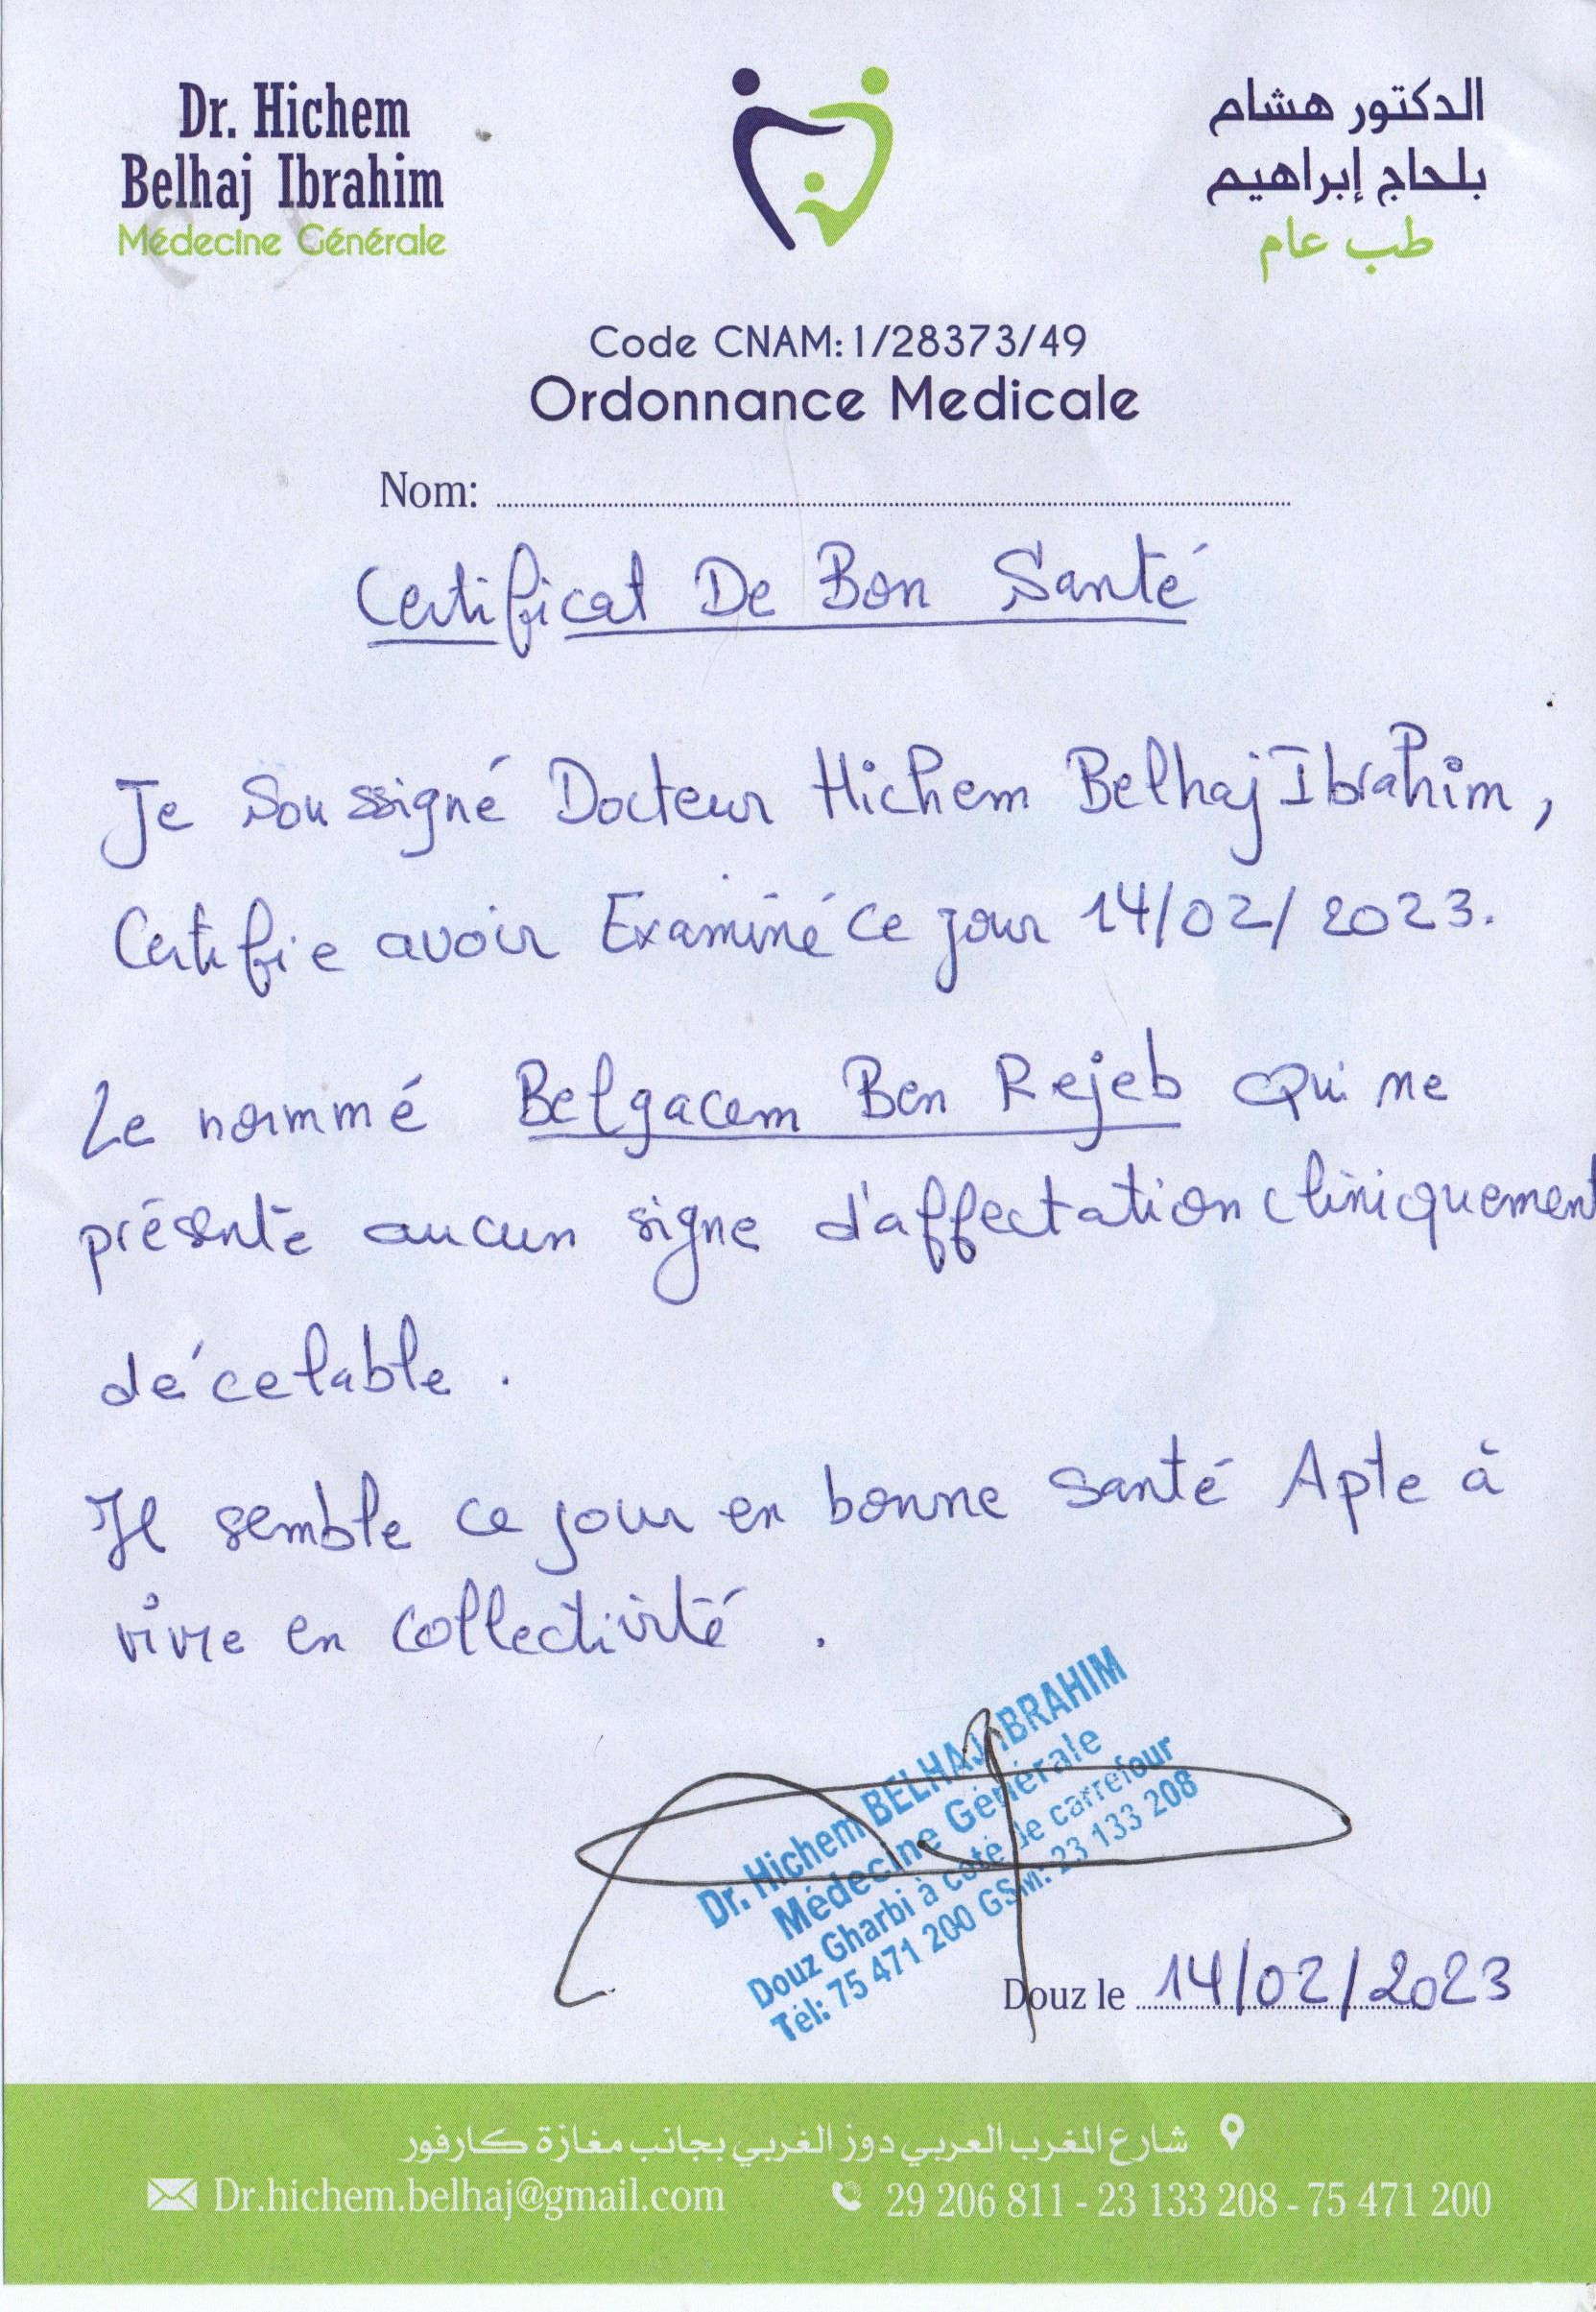 Dr. Hichem
Belhaj Ibrahim
Médecine Générale
الدكتور هشام
بلحاج إبراهيم
طب عام
Code CNAM:1/28373/49
Ordonnance Medicale
Nom:
Certificat De Bon Santé
Je Soussigné Docteur Hichem Belhaj Ibrahim,
Certifie avoir Examiné ce jour 14/02/2023.
Le nommé Belgacem Ben Rejeb Qui ne
présente aucun signe d'affectation cliniquement
décelable.
Il semble ce jour en bonne santé Apte à
vivre en collectivité.
Dr. Hichem BELHAJ IBRAHIM
Médecine Générale
Douz Gharbi à coté de carrefour
Tél: 75 471 200 GSM: 23 133 208
Douz le 14/02/2023
شارع المغرب العربي دوز الغربي بجانب مغازة كارفور
Dr.hichem.belhaj@gmail.com
29 206 811 - 23 133 208 - 75 471 200